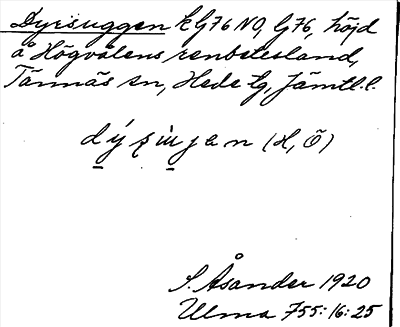 Dyrsuggen k G76 NO, G76, höjd
å Högvålens renbetesland,
Tännäs sn, Hede tg, Jämtl. l.
(H, Ö)
S. Åsander 1920
Ulma 755:16:25